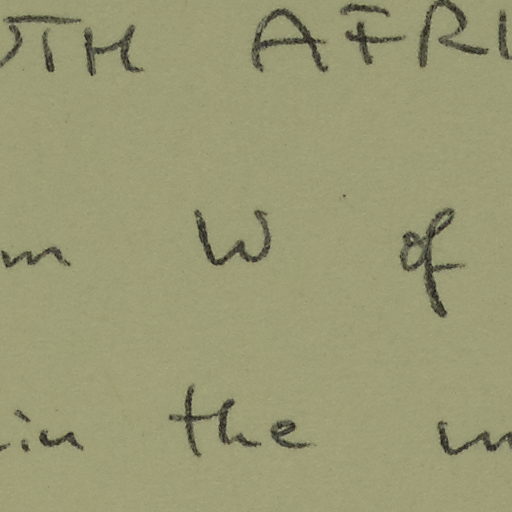 UTH AFRI
m W of
in the m